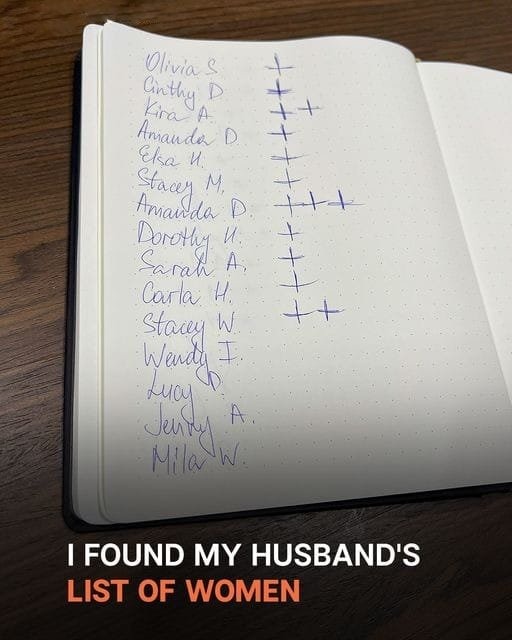 Olivia S +
Cinthy D +
Kira A. + +
Amanda D. +
Elsa H. +
Stacey M. +
Amanda D. + + +
Dorothy H. +
Sarah A. +
Carla H. +
Stacey W + +
Wendy I.
Lucy D.
Jenny A.
Mila W.
I FOUND MY HUSBAND'S
LIST OF WOMEN